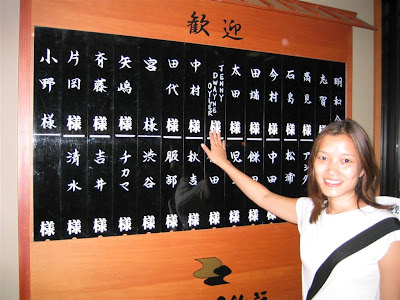 歓迎
明和会
志賀
高見様
石島様
今村様
田端様
太田様
JENNY
DWAYNE
OYLER
様
中村様
田代様
宮様
矢嶋様
斉藤様
片岡様
小野様
松浦
中田
田様
秋吉様
服部様
渋谷様
チカマ様
吉井様
清水様
様